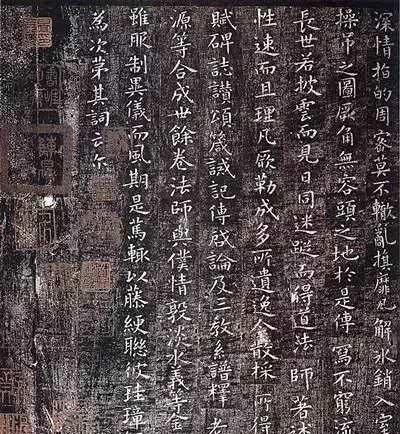 深情指的周密莫不轍亂旗靡瓦解氷銷入室
操弔之圖厥角無容頭之地於是傳寫不窮流
長世若披雲而見日同迷蹤而得道法師著述
性速而且理凡厥勒成多所遺逸今散採所得
賦碑誌讃頌箴誡記傳啓論及三教系譜釋老
源等合成卅餘卷法師與僕情敦淡水義等金
雖服制異儀而風期是篤輙以藤綆聯彼珪璋
為次第其詞云尔